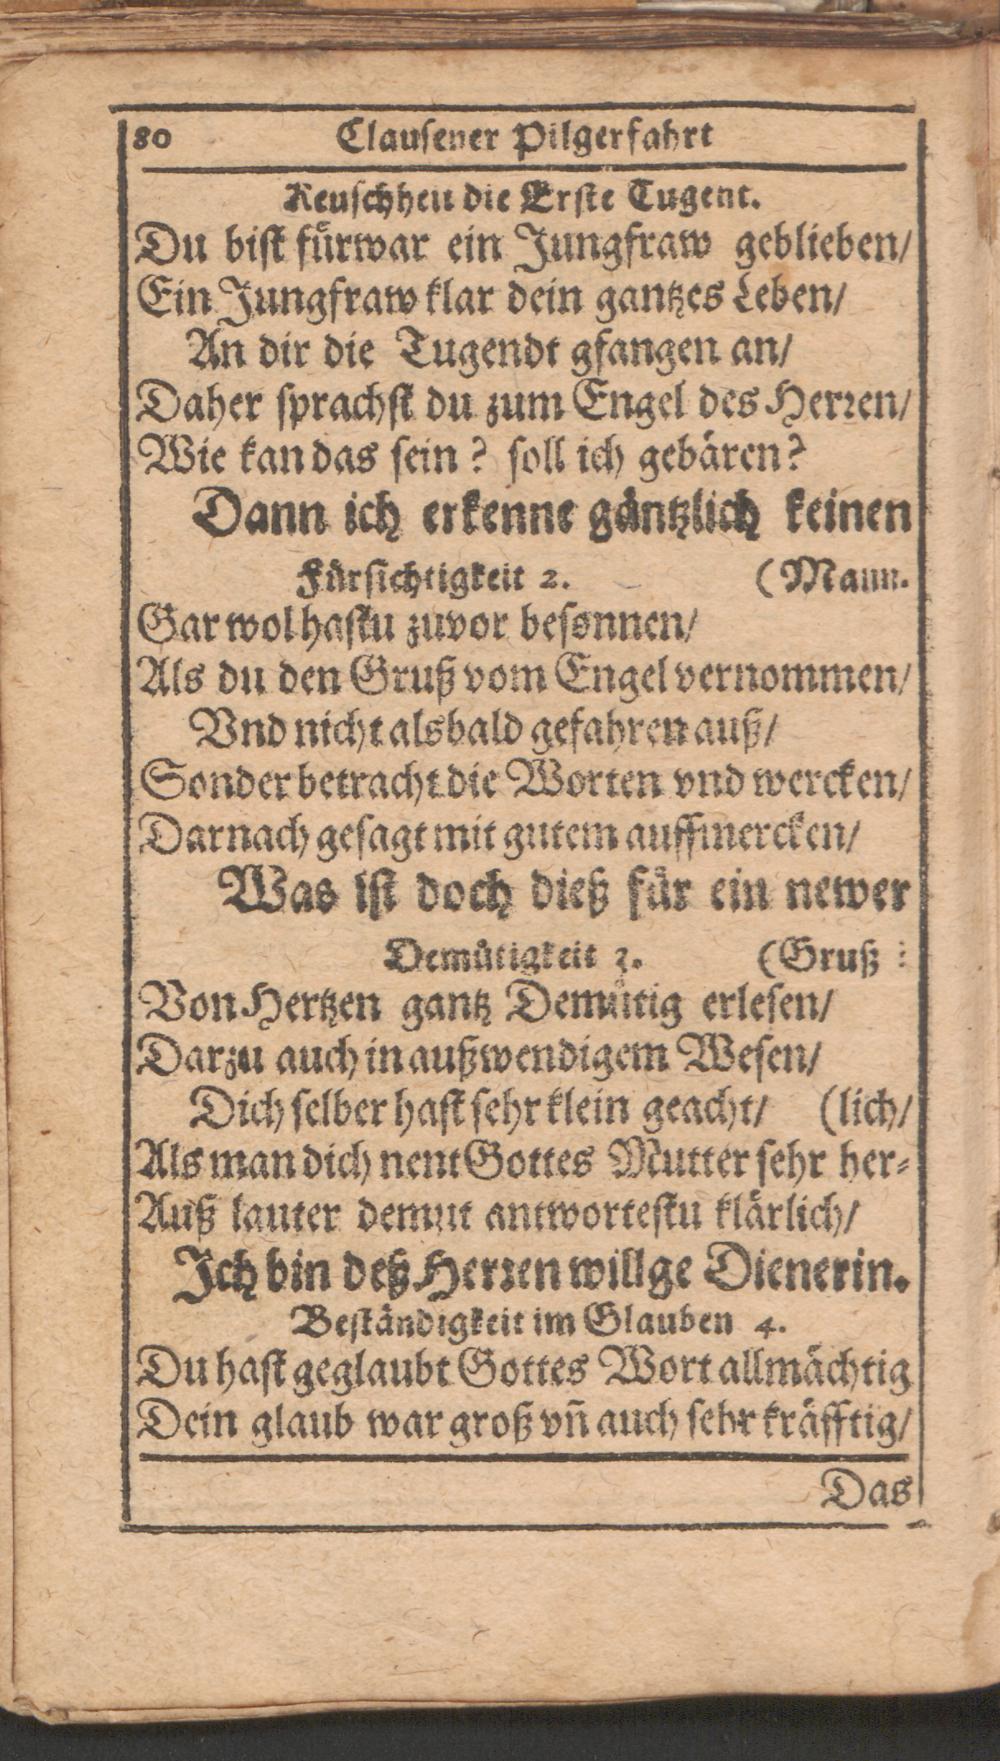 80 Clausener Pilgerfahrt
Keuschheit die Erste Tugent.
Du bist fürwar ein Jungfraw geblieben/
Ein Jungfraw klar dein gantzes Leben/
An dir die Tugendt gfangen an/
Daher sprachst du zum Engel des Herren/
Wie kan das sein? soll ich gebären?
Dann ich erkenne gäntzlich keinen
Fürsichtigkeit 2. (Mann.
Gar wol hastu zuvor besonnen/
Als du den Gruß vom Engel vernommen/
Vnd nicht alsbald gefahren auß/
Sonder betracht die Worten vnd wercken/
Darnach gesagt mit gutem auffmercken/
Was ist doch dieß für ein newer
Demütigkeit 3. (Gruß :
Von Hertzen gantz Demütig erlesen/
Darzu auch in außwendigem Wesen/
Dich selber hast sehr klein geacht/ (lich/
Als man dich nent Gottes Mutter sehr her-
Auß lauter demut antwortestu klärlich/
Ich bin deß Herren willge Dienerin.
Beständigkeit im Glauben 4.
Du hast geglaubt Gottes Wort allmächtig
Dein glaub war groß vñ auch sehr kräfftig/
Das